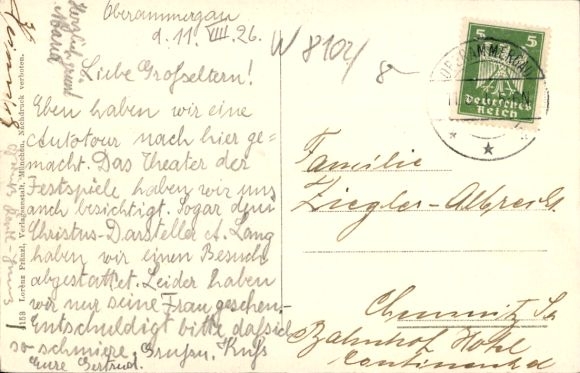 Oberammergau
d. 11. VIII. 26.
W 8102/
8
Liebe Großeltern!
Eben haben wir eine
Autotour nach hier ge-
macht. Das Theater der
Festspiele haben wir uns
auch besichtigt. Sogar dem
Christus-Darsteller A. Lang
haben wir einen Besuch
abgestattet. Leider haben
wir nur seine Frau gesehen.
Entschuldigt bitte daß ich
so schmiere. Gruß u. Kuß
Eure Gertrud.
Herzlichen Gruß
5 5
Deutsches
Reich
OBERAMMERGAU
Familie
Ziegler-Albrecht
Chemnitz Sa
Bahnhof Hotel
Continental
9159 Lorenz Fränzl, Verlagsanstalt, München. Nachdruck verboten.